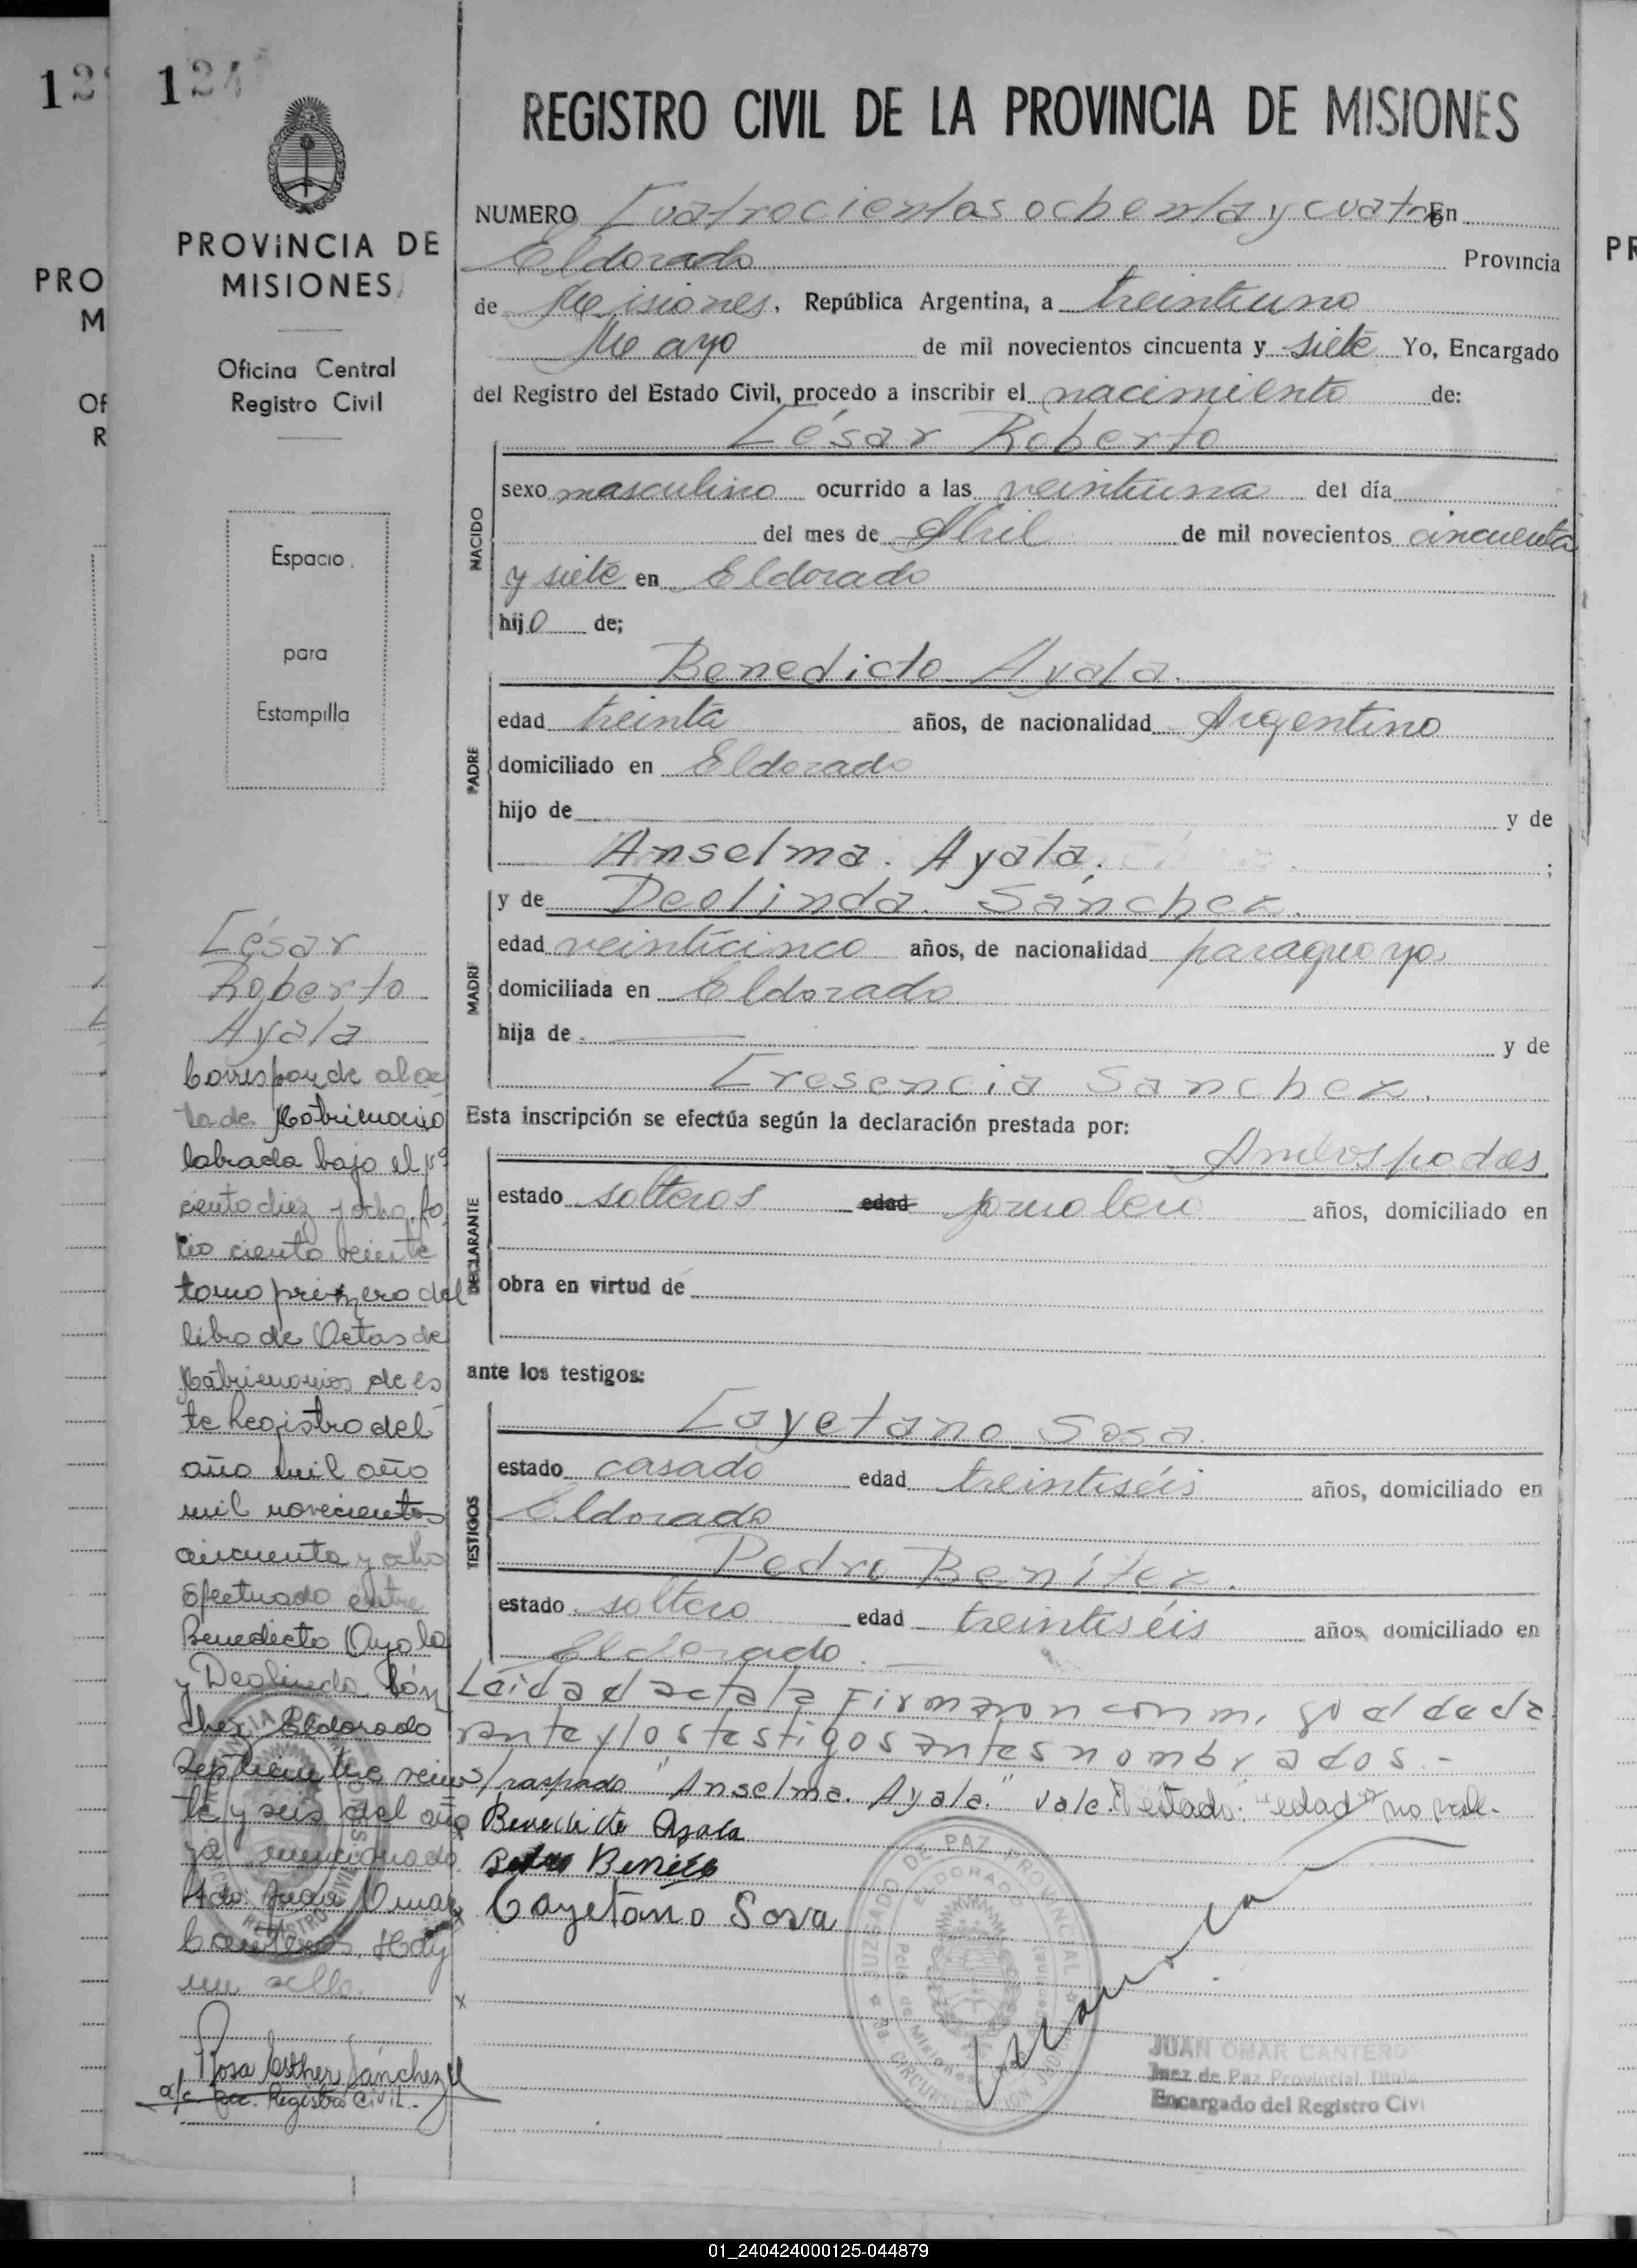 124
PROVINCIA DE
MISIONES
Oficina Central
Registro Civil
Espacio
para
Estampilla
César
Roberto
Ayala
Corresponde al ac
ta de Matrimonio
labrada bajo el nº
ciento diez y ocho, fo
lio ciento veinte
tomo primero del
libro de Actas de
Matrimonios de es
te Registro del
año mil año
mil novecientos
cincuenta y ocho
efectuado entre
Benedicto Ayala
y Deolinda Sán
chez Eldorado
Septiembre vein
te y seis del año
ya mencionado.
Fdo: Juan Omar
Canteros. Hay
un sello.
Rosa Esther Sánchez
a/c Registro Civil.-
REGISTRO CIVIL DE LA PROVINCIA DE MISIONES
NUMERO Cuatrocientos ochenta y cuatro En
Eldorado Provincia
de Misiones, República Argentina, a treintiuno
Mayo de mil novecientos cincuenta y siete Yo, Encargado
del Registro del Estado Civil, procedo a inscribir el nacimiento de:
César Roberto
NACIDO
sexo masculino ocurrido a las veintiuna del día
del mes de Abril de mil novecientos cincuenta
y siete en Eldorado
hijo de;
Benedicto Ayala.
PADRE
edad treinta años, de nacionalidad Argentino
domiciliado en Eldorado
hijo de y de
Anselma. Ayala. ;
y de Deolinda. Sánchez.
MADRE
edad veinticinco años, de nacionalidad paraguaya
domiciliada en Eldorado
hija de y de
Cresencia Sanchez.
Esta inscripción se efectúa según la declaración prestada por:
Ambos padres
DECLARANTE
estado solteros edad jornalero años, domiciliado en
obra en virtud de
ante los testigos:
Cayetano Sosa.
TESTIGOS
estado casado edad treintiséis años, domiciliado en
Eldorado
Pedro Benítez.
estado soltero edad treintiséis años, domiciliado en
Eldorado.
Leida el acta la firmaron conmigo el decla
rante y los testigos antes nombrados.-
s/raspado "Anselma. Ayala." vale. Testado: "edad" no vale.-
Benedicto Ayala
Pedro Benites
Cayetano Sosa
JUZGADO DE PAZ PROVINCIAL
ELDORADO
Pcia de Misiones
CIRCUNSCRIPCION JUDICIAL
JUAN OMAR CANTERO
Juez de Paz Provincial Titula
Encargado del Registro Civi
01_240424000125-044879